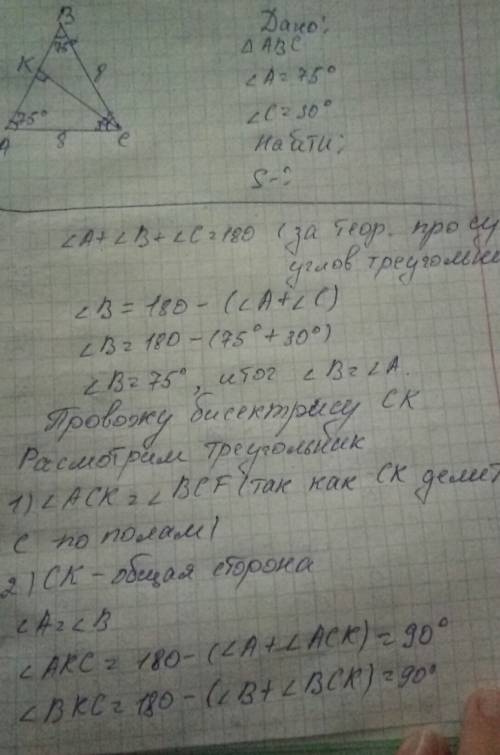 B
75°
K
8
75°
30°
A
8
C
Дано:
△ABC
∠A=75°
∠C=30°
Найти:
S-?
∠A+∠B+∠C=180 (за теор. про су
углов треугольни
∠B=180-(∠A+∠C)
∠B=180-(75°+30°)
∠B=75°, итог ∠B=∠A.
Провожу бисектрису CK
Расмотрим треугольник
1) ∠ACK=∠BCF (так как CK делит
C по полам)
2) CK - общая сторона
∠A=∠B
∠AKC=180-(∠A+∠ACK)=90°
∠BKC=180-(∠B+∠BCK)=90°